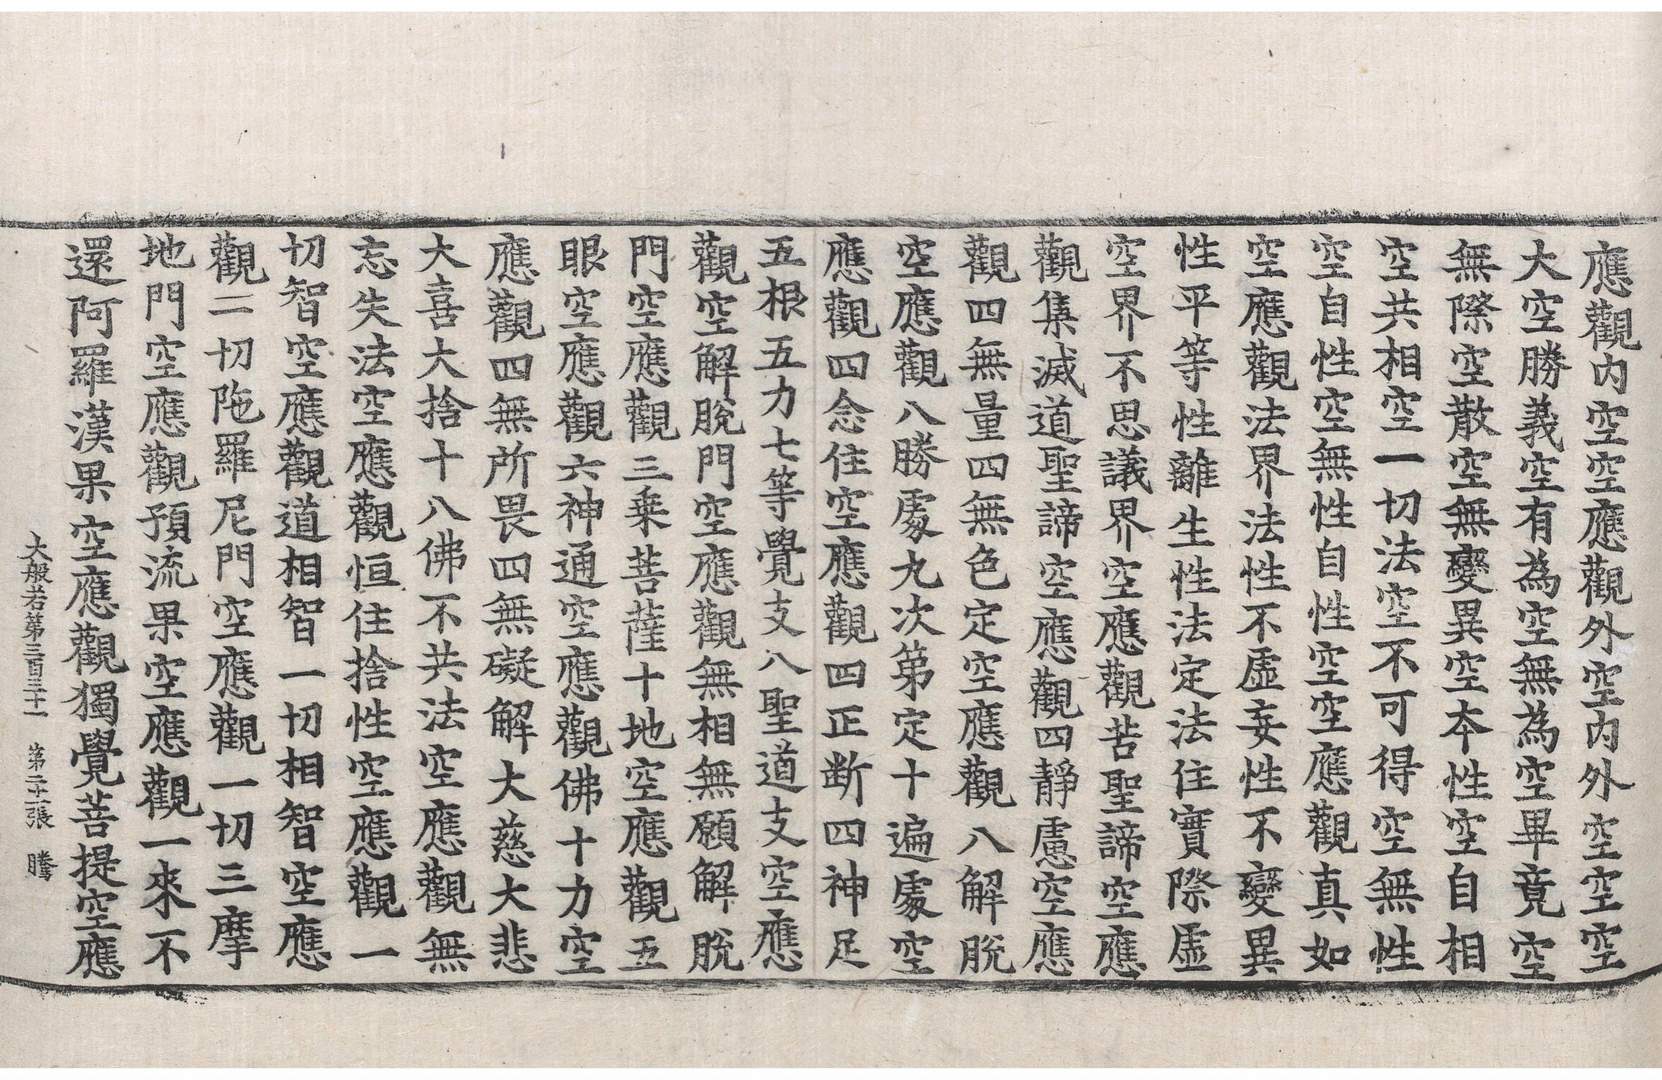 應觀內空空應觀外空內外空空空
大空勝義空有為空無為空畢竟空
無際空散空無變異空本性空自相
空共相空一切法空不可得空無性
空自性空無性自性空空應觀真如
空應觀法界法性不虛妄性不變異
性平等性離生性法定法住實際虛
空界不思議界空應觀苦聖諦空應
觀集滅道聖諦空應觀四靜慮空應
觀四無量四無色定空應觀八解脫
空應觀八勝處九次第定十遍處空
應觀四念住空應觀四正斷四神足
五根五力七等覺支八聖道支空應
觀空解脫門空應觀無相無願解脫
門空應觀三乗菩薩十地空應觀五
眼空應觀六神通空應觀佛十力空
應觀四無所畏四無礙解大慈大悲
大喜大捨十八佛不共法空應觀無
忘失法空應觀恒住捨性空應觀一
切智空應觀道相智一切相智空應
觀一切陁羅尼門空應觀一切三摩
地門空應觀預流果空應觀一來不
還阿羅漢果空應觀獨覺菩提空應
大般若第三百三十一 第二十二張 騰